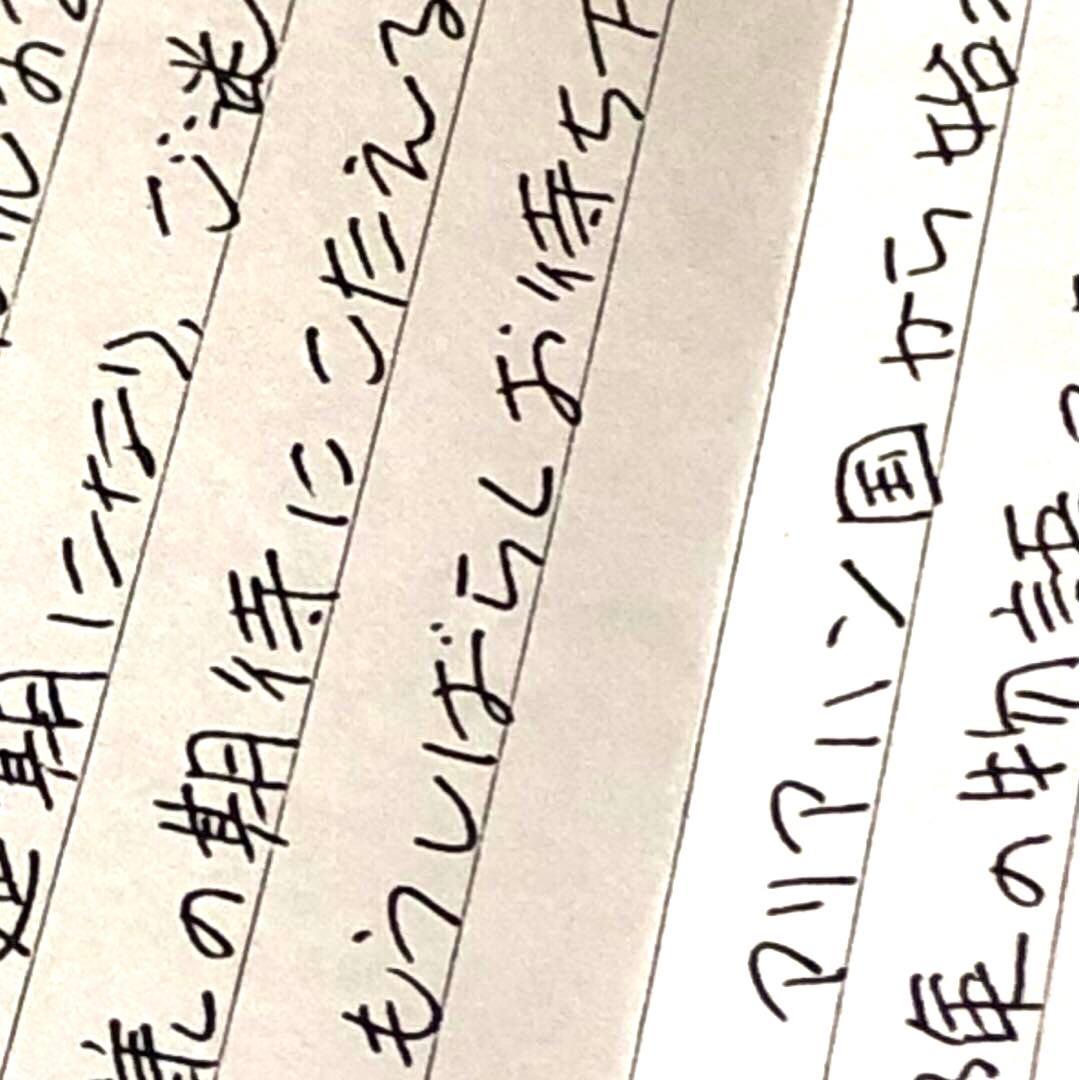 期になり、ご迷
様の期待にこたえる
もうしばらくお待ち下
アリアハン国から始
の物語